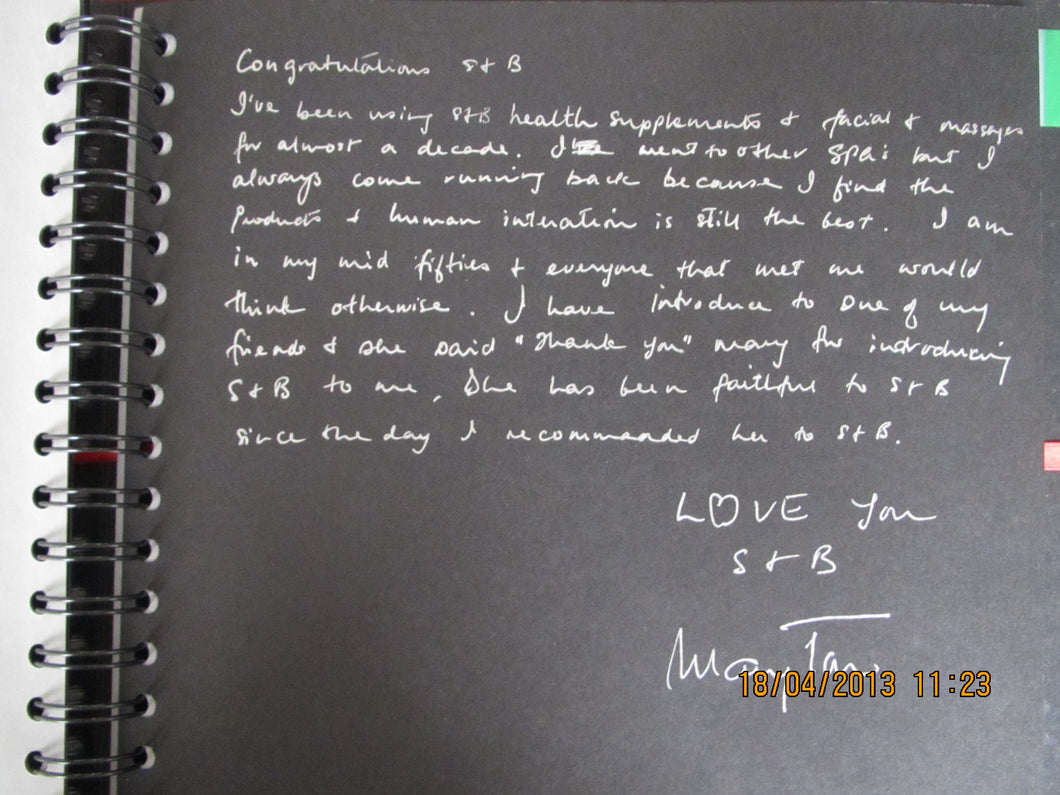 Congratulations S+B
I've been using S+B health supplements + facial + massages
for almost a decade. I went to other SPAs but I
always come running back because I find the
products + human interation is still the best. I am
in my mid fifties + everyone that met me would
think otherwise. I have introduce to one of my
friends + she said "Thank you" many for introducing
S+B to me, She has been faithful to S+B
since the day I recommanded her to S+B.
LOVE You
S+B
Mary Tan
18/04/2013 11:23